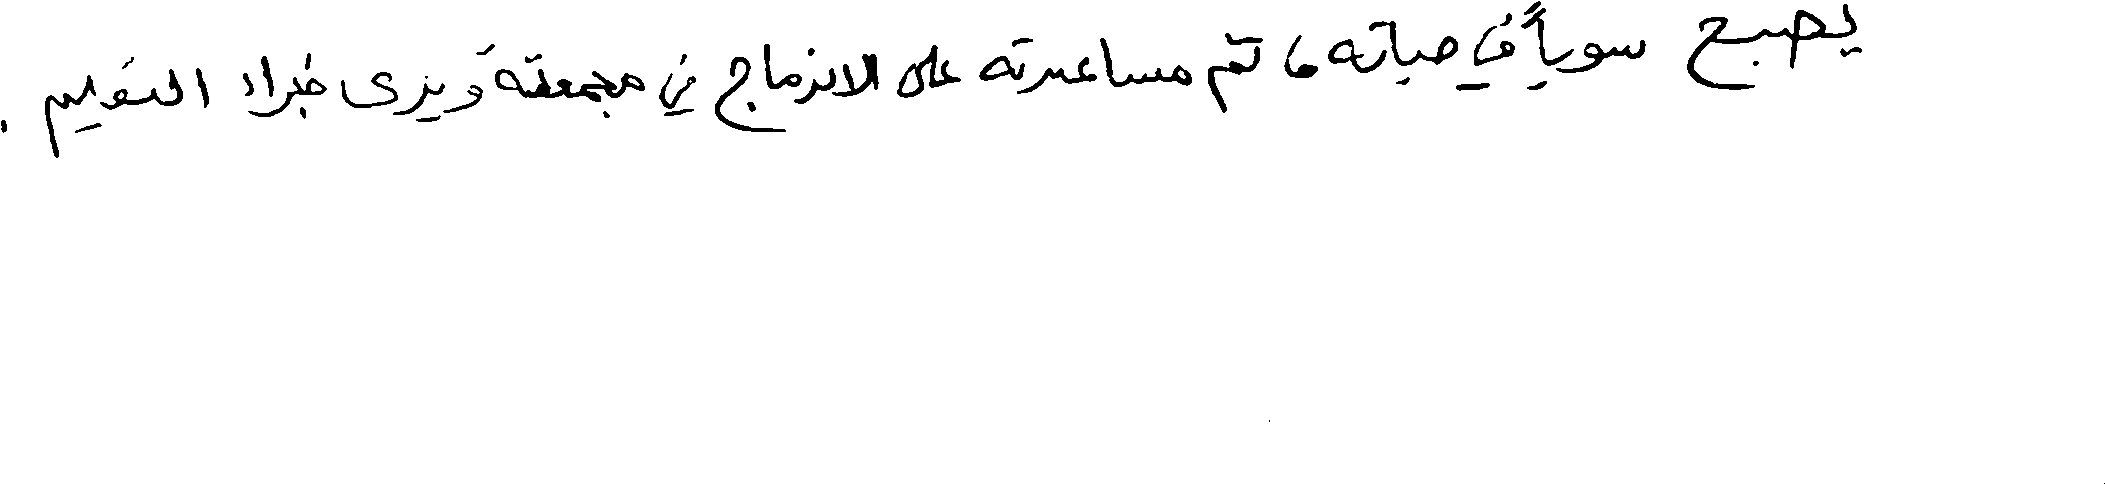 يصبح سوياً في حياته ، ثم مساعدته على الاندماج في مجتمعه ويرى خبراء التقييم .